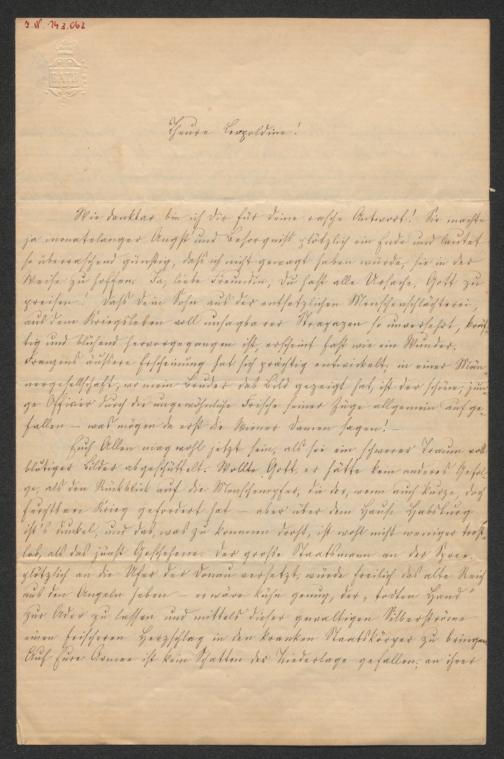 I.N. 143.062
BATH
Theure Leopoldine!
Wie dankbar bin ich Dir für Deine rasche Antwort! Sie machte
ja monatelanger Angst und Besorgniß plötzlich ein Ende und lautet
so überraschend günstig, daß ich nicht gewagt haben würde, sie in der
Weise zu hoffen. Ja, liebe Freundin, Du hast alle Ursache, Gott zu
preisen! Daß Dein Sohn aus der entsetzlichen Menschenschlächterei,
aus dem Kriegsleben voll unsagbarer Strapazen so unversehrt, kräf-
tig und blühend hervorgegangen ist, erscheint fast wie ein Wunder.
Franzens äußere Erscheinung hat sich prächtig entwickelt; in einer Män-
nergesellschaft, wo mein Bruder das Bild gezeigt hat, ist der schöne, jun-
ge Offizier durch die ungewöhnliche Frische seiner Züge allgemein aufge-
fallen – was mögen da erst die Wiener Damen sagen! –
Euch Allen mag wohl jetzt sein, als sei ein schwerer Traum voll
blutiger Bilder abgeschüttelt. Wollte Gott, er hätte kein anderes Gefol-
ge, als den Rückblick auf die Menschenopfer, die der, wenn auch kurze, doch
furchtbare Krieg gefordert hat – aber über dem Hause Habsburg
ist's dunkel, und das, was zu kommen droht, ist wohl nicht weniger trost-
los, als das jüngst Geschehene. Der große Staatsmann an der Spree,
plötzlich an die Ufer der Donau versetzt, würde freilich das alte Reich
aus den Angeln heben – er wäre kühn genug, der „todten Hand"
zur Ader zu lassen und mittels dieser gewaltigen Silberströme
einen frischeren Herzschlag in den kranken Staatskörper zu bringen.
Auf Eure Armee ist kein Schatten der Niederlage gefallen; an ihrer